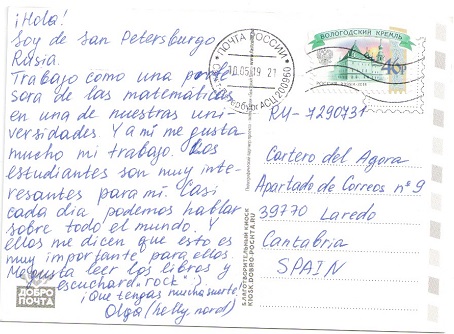 ¡Hola!
Soy de San Petersburgo
Rusia.
Trabajo como una profe
sora de las matemáticas
en una de nuestras uni-
versidades. Y a mí me gusta
mucho mi trabajo. Los
estudiantes son muy inte-
resantes para mí. Casi
cada día podemos hablar
sobre todo el mundo. Y
ellos me dicen que esto es
muy importante para ellos.
Me gusta leer los libros y
escuchar "rock" :).
¡Que tengas mucha suerte!
Olga (helly_nord)
ДОБРО
ПОЧТА
БЛАГОТВОРИТЕЛЬНЫЙ КИОСК
KIOSK.DOBRO-POCHTA.RU
ПОЧТА РОССИИ
10.05.19 21
АСЦ 200960
ВОЛОГОДСКИЙ КРЕМЛЬ
46р
РОССИЯ
RU-7290731
Cartero del Agora
Apartado de Correos nº 9
39770 Laredo
Cantabria
SPAIN